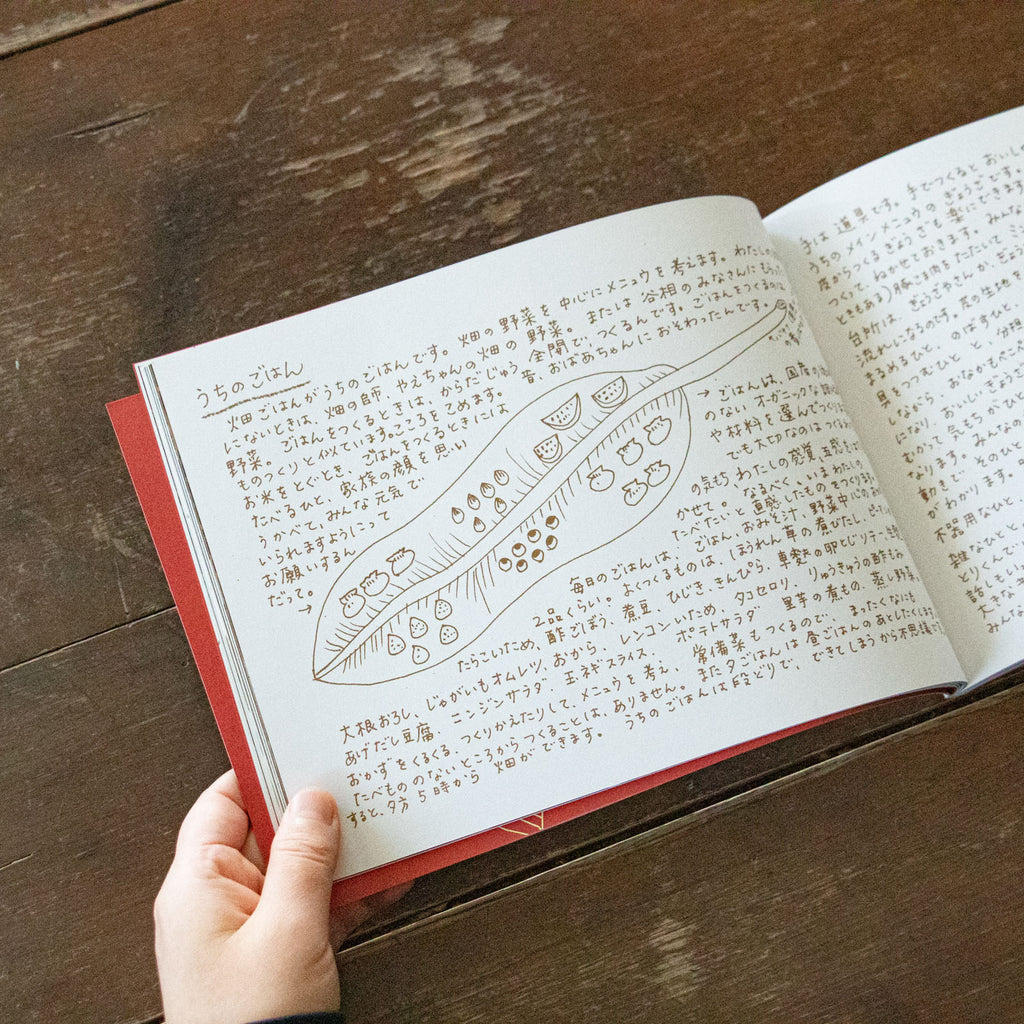 うちのごはん
畑ごはんがうちのごはんです。畑の野菜を中心にメニュウを考えます。わたしの
にないときは、畑の師、やえちゃんの畑の野菜。またしは谷相のみなさんにもらった
野菜。ごはんをつくるときは、からだじゅう全開で、つくるんです。ごはんをつくるのは、
ものつくりと似ています。こころをこめます。昔、おばあちゃんにおそわったんです。
お米をとぐとき、ごはんをつくるときには
たべるひと、家族の顔を思い
うかべて、みんな元気で
いられますようにって
お願いするん
だって。→
→ごはんは、国産の
のないオーガニックな
や材料を選んでつくり
でも大切なのはつくる
の気もち わたしの感覚、五感を
かせて。なるべく、いまわたしの
たべたいと直感したものをつくります
毎日のごはんは、ごはん、おみそ汁、野菜中心のお
2品くらい。よくつくるものは、ほうれん草の煮びたし、
たらこいため、酢ごぼう、煮豆、ひじき、きんぴら、車麩の卵とじ
大根おろし、じゃがいもオムレツ、おから、レンコンいため、タコセロリ、りゅうきゅうの酢もみ
あげだし豆腐、ニンジンサラダ、玉ネギスライス ポテトサラダ 里芋の煮もの、蒸し野菜、
おかずをくるくる、つくりかえたりして、メニュウを考え、常備菜もつくるので、まったくなにも
たべもののないところからつくることは、ありません。また夕ごはんは昼ごはんのあとしたくします
すると、夕方5時から畑ができます。うちのごはんは段どりで、できてしまうから不思議
手は道具です。手でつくるとおいし
うちのメインメニュウのぎょうざです。
度からつくるぎょうざも楽にできます
つくって、ねかせておきます。みんな
ときもある)豚こま肉をたたいてミ
台所は ぎょうざやさんか
流れになるのです。皮の生地を
まるめるひと、のばすひと
具をつつむひと と、分担
しながら、おなかもぺこぺ
になり、おいしいぎょうざ
むかって気もちがひと
なります。みんなの
動きで そのひと
がわかります。
不器用なひと、
雑なひとと
とりくんで
話しもいい
大きな
みんな